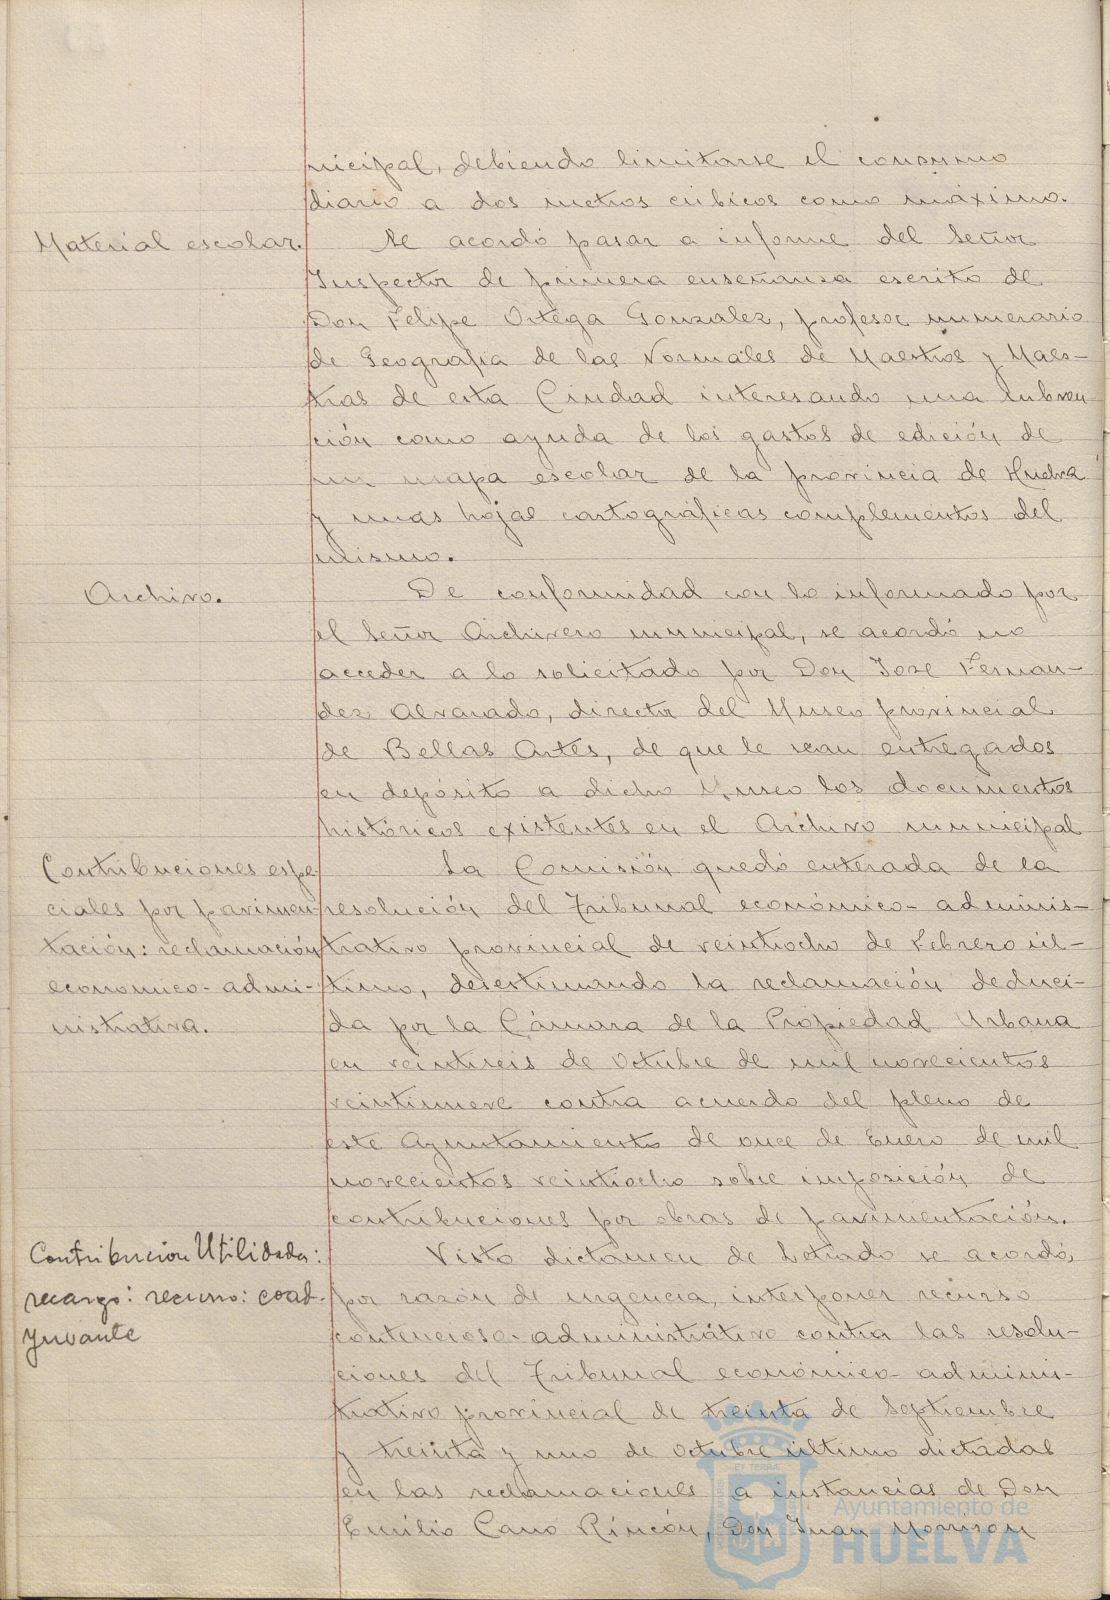 nicipal, debiendo limitarse el consumo
diario a dos metros cúbicos como máximo.
Material escolar.
Se acordó pasar a informe del Señor
Inspector de primera enseñanza escrito de
Don Felipe Ortega Gonzalez, profesor numerario
de Geografia de las Normales de Maestros y Maes-
tras de esta Ciudad interesando una subven-
ción como ayuda de los gastos de edición de
un mapa escolar de la provincia de Huelva
y unas hojas cartográficas complementos del
mismo.
Archivo.
De conformidad con lo informado por
el Señor Archivero municipal, se acordó no
acceder a lo solicitado por Don Jose Fernan-
dez Alvarado, director del Museo provincial
de Bellas Artes, de que le sean entregados
en depósito a dicho Museo los documentos
históricos existentes en el Archivo municipal
Contribuciones espe-
ciales por pavimen-
tación: reclamación
economico-admi-
nistrativa.
La Comisión quedó enterada de la
resolución del Tribunal económico-adminis-
trativo provincial de veintiocho de Febrero úl-
timo, desestimando la reclamación deduci-
da por la Cámara de la Propiedad Urbana
en veintiseis de Octubre de mil novecientos
veintinueve contra acuerdo del pleno de
este Ayuntamiento de once de Enero de mil
novecientos veintiocho sobre imposición de
contribuciones por obras de pavimentación.
Contribucion Utilidades:
recargo: recurso: coad-
yuvante
Visto dictamen de Letrado se acordó,
por razón de urgencia, interponer recurso
contencioso-administrativo contra las resolu-
ciones del Tribunal económico-adminis-
trativo provincial de treinta de Septiembre
y treinta y uno de Octubre último dictadas
en las reclamaciones a instancias de Don
Emilio Cano Rincón, Don Juan Morrison
Ayuntamiento de
HUELVA